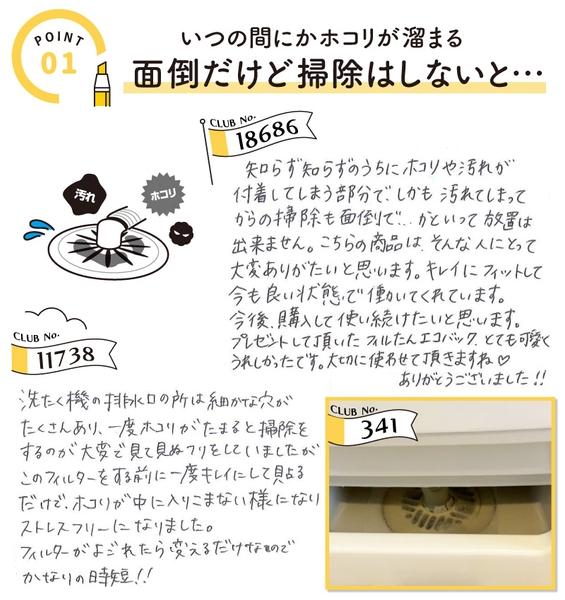 POINT
01
いつの間にかホコリが溜まる
面倒だけど掃除はしないと…
CLUB No.
18686
汚れ
ホコリ
知らず知らずのうちにホコリや汚れが
付着してしまう部分で、しかも汚れてしまって
からの掃除も面倒で…かといって放置は
出来ません。こちらの商品は、そんな人にとって
大変ありがたいと思います。キレイにフィットして
今も良い状態で働いてくれています。
今後、購入して使い続けたいと思います。
プレゼントして頂いたフィルたんエコバック、とても可愛く
うれしかったです。大切に使わせて頂きますね♡
ありがとうございました!!
CLUB No.
11738
洗たく機の排水口の所は細かな穴が
たくさんあり、一度ホコリがたまると掃除を
するのが大変で見て見ぬフリをしていましたが
このフィルターをする前に一度キレイにして貼る
だけで、ホコリが中に入りこまない様になり
ストレスフリーになりました。
フィルターがよごれたら変えるだけなので
かなりの時短!!
CLUB No.
341